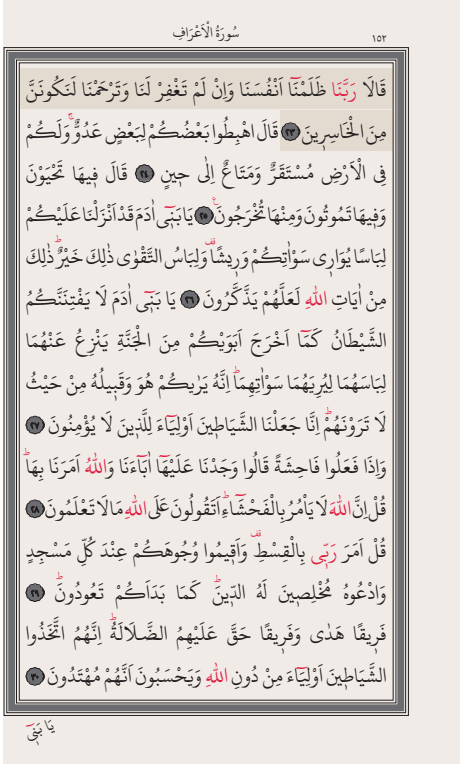 ١٥٢ سُورَةُ الْاَعْرَافِ
قَالَا رَبَّنَا ظَلَمْنَٓا اَنْفُسَنَا وَاِنْ لَمْ تَغْفِرْ لَنَا وَتَرْحَمْنَا لَنَكُونَنَّ
مِنَ الْخَاسِر۪ينَ ﴿٢٣﴾ قَالَ اهْبِطُوا بَعْضُكُمْ لِبَعْضٍ عَدُوٌّۚ وَلَكُمْ
فِي الْاَرْضِ مُسْتَقَرٌّ وَمَتَاعٌ اِلٰى ح۪ينٍ ﴿٢٤﴾ قَالَ ف۪يهَا تَحْيَوْنَ
وَف۪يهَا تَمُوتُونَ وَمِنْهَا تُخْرَجُونَ۟ ﴿٢٥﴾ يَا بَن۪ٓي اٰدَمَ قَدْ اَنْزَلْنَا عَلَيْكُمْ
لِبَاسًا يُوَار۪ي سَوْاٰتِكُمْ وَر۪يشًاۜ وَلِبَاسُ التَّقْوٰى ذٰلِكَ خَيْرٌۜ ذٰلِكَ
مِنْ اٰيَاتِ اللّٰهِ لَعَلَّهُمْ يَذَّكَّرُونَ ﴿٢٦﴾ يَا بَن۪ٓي اٰدَمَ لَا يَفْتِنَنَّكُمُ
الشَّيْطَانُ كَمَٓا اَخْرَجَ اَبَوَيْكُمْ مِنَ الْجَنَّةِ يَنْزِعُ عَنْهُمَا
لِبَاسَهُمَا لِيُرِيَهُمَا سَوْاٰتِهِمَاۜ اِنَّهُ يَرٰيكُمْ هُوَ وَقَب۪يلُهُ مِنْ حَيْثُ
لَا تَرَوْنَهُمْۜ اِنَّا جَعَلْنَا الشَّيَاط۪ينَ اَوْلِيَٓاءَ لِلَّذ۪ينَ لَا يُؤْمِنُونَ ﴿٢٧﴾
وَاِذَا فَعَلُوا فَاحِشَةً قَالُوا وَجَدْنَا عَلَيْهَٓا اٰبَٓاءَنَا وَاللّٰهُ اَمَرَنَا بِهَاۜ
قُلْ اِنَّ اللّٰهَ لَا يَأْمُرُ بِالْفَحْشَٓاءِۜ اَتَقُولُونَ عَلَى اللّٰهِ مَا لَا تَعْلَمُونَ ﴿٢٨﴾
قُلْ اَمَرَ رَبّ۪ي بِالْقِسْطِ۠ وَاَق۪يمُوا وُجُوهَكُمْ عِنْدَ كُلِّ مَسْجِدٍ
وَادْعُوهُ مُخْلِص۪ينَ لَهُ الدّ۪ينَۜ كَمَا بَدَاَكُمْ تَعُودُونَۜ ﴿٢٩﴾
فَر۪يقًا هَدٰى وَفَر۪يقًا حَقَّ عَلَيْهِمُ الضَّلَالَةُۜ اِنَّهُمُ اتَّخَذُوا
الشَّيَاط۪ينَ اَوْلِيَٓاءَ مِنْ دُونِ اللّٰهِ وَيَحْسَبُونَ اَنَّهُمْ مُهْتَدُونَ ﴿٣٠﴾
يَا بَن۪ٓي